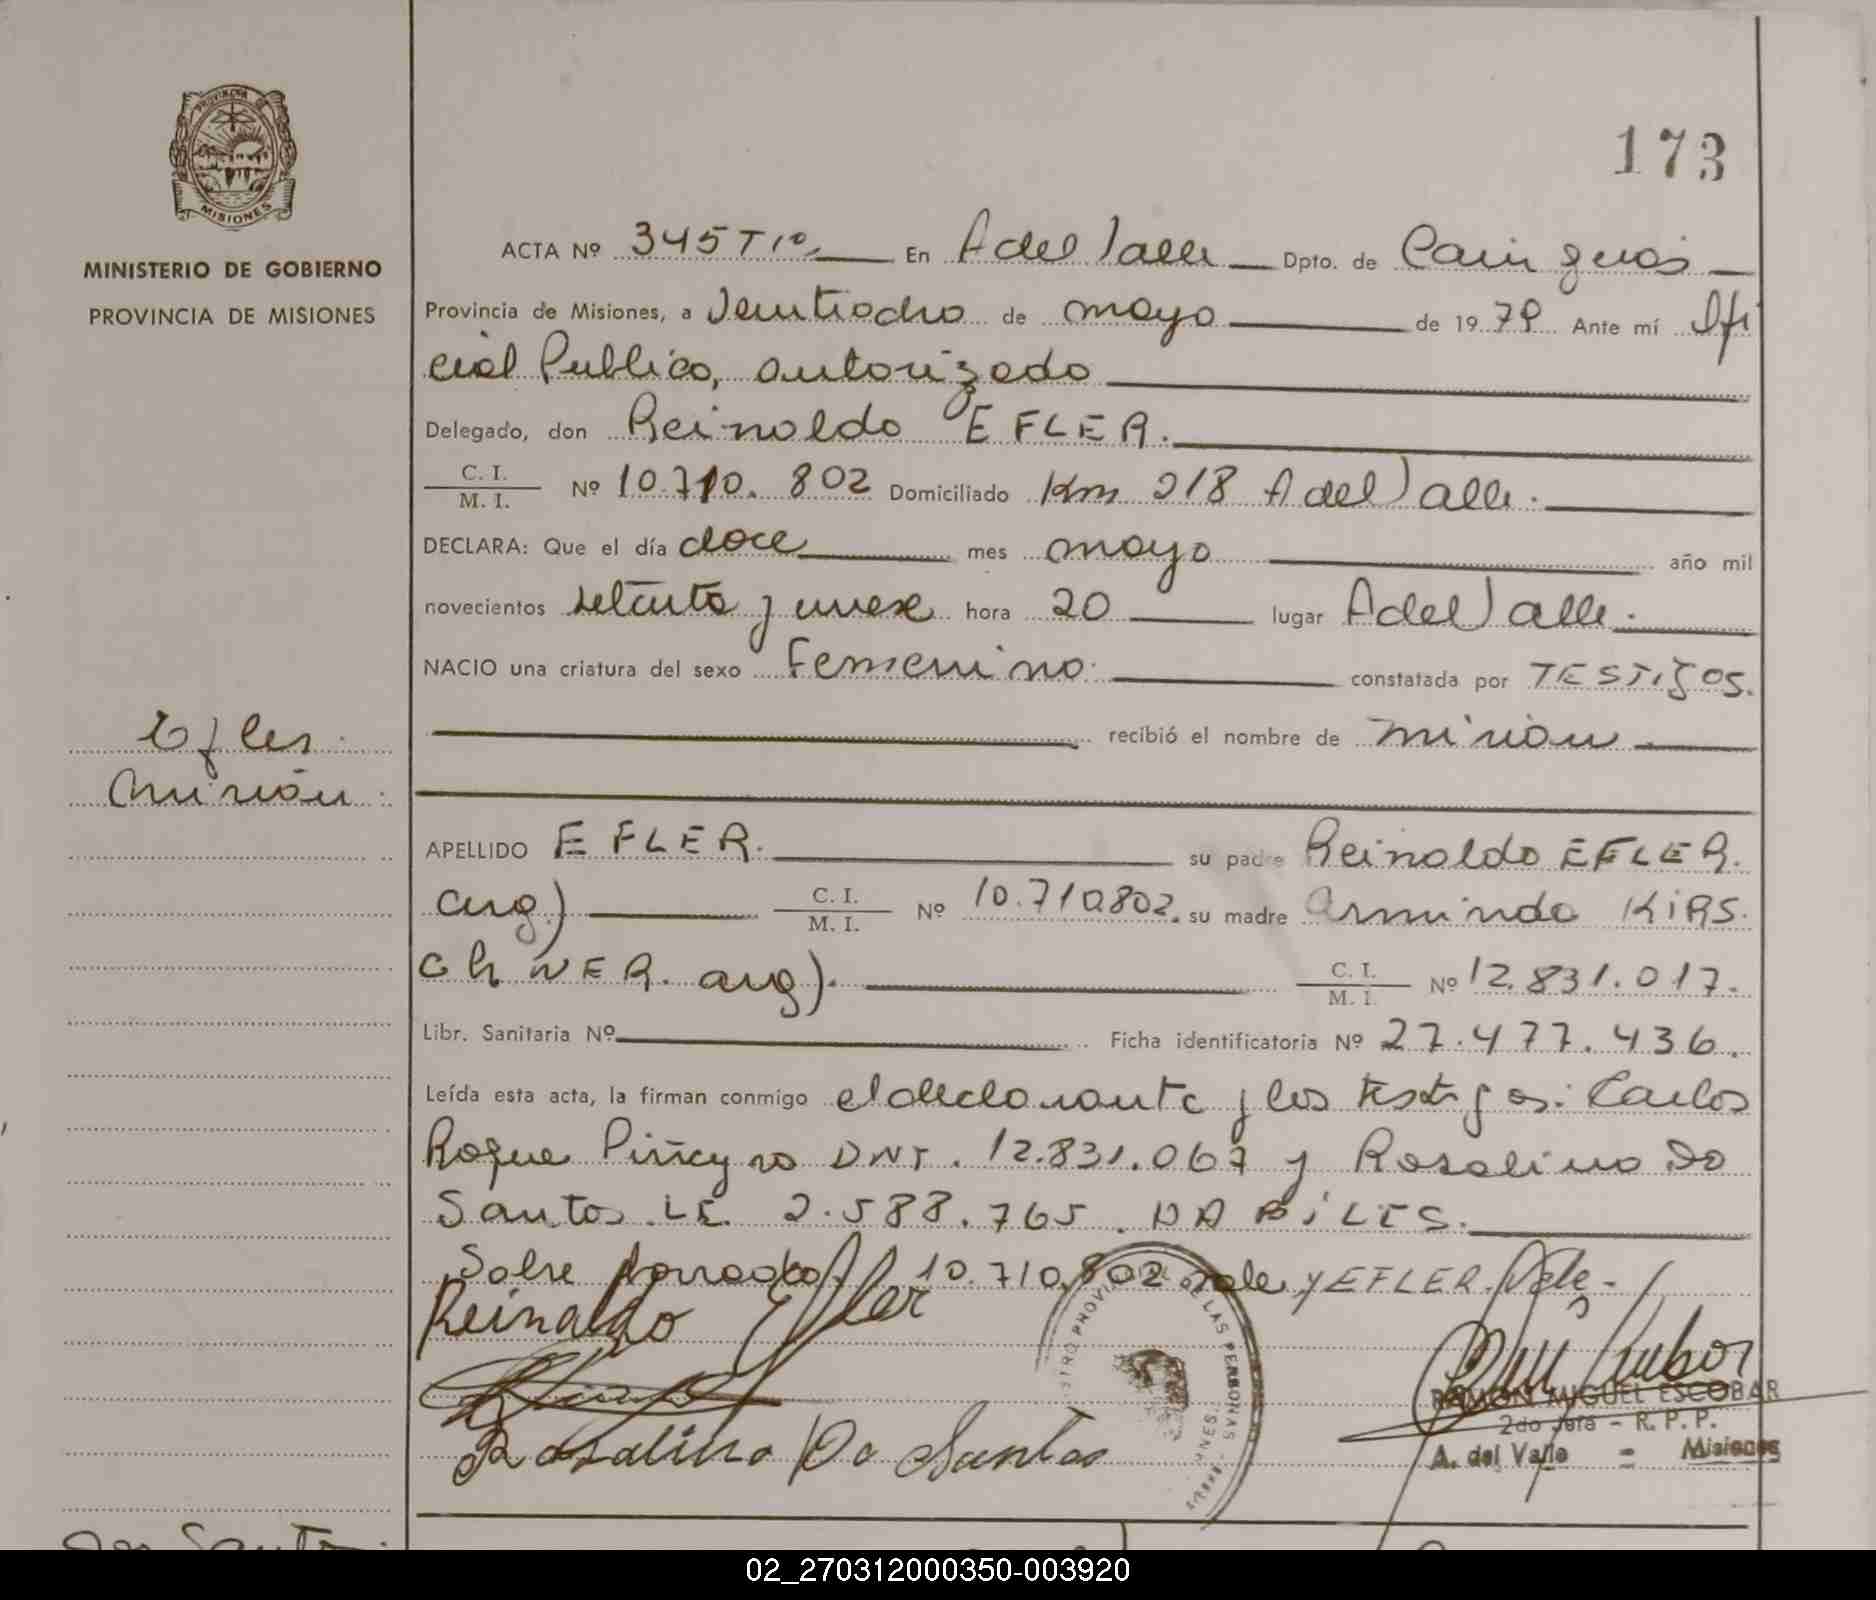 173
PROVINCIA DE
MISIONES
MINISTERIO DE GOBIERNO
PROVINCIA DE MISIONES
ACTA Nº 345 Tº En A del Valle Dpto. de Cainguas
Provincia de Misiones, a Veintiocho de mayo de 19 79 Ante mí Ofi
cial Publico, autorizado
Delegado, don Reinoldo EFLER.
C. I. / M. I. Nº 10.710.802 Domiciliado Km 218 A del Valle.
DECLARA: Que el día doce mes mayo año mil
novecientos setenta y nueve hora 20 lugar A del Valle.
NACIO una criatura del sexo Femenino. constatada por TESTigos.
recibió el nombre de Mirian
Efler
Mirian
APELLIDO EFLER. su padre Reinoldo EFLER.
arg) C. I. / M. I. Nº 10.710.802. su madre Arminda KiRS.
Ch NER. arg). C. I. / M. I. Nº 12.831.017.
Libr. Sanitaria Nº Ficha identificatoria Nº 27.477.436.
Leída esta acta, la firman conmigo el declarante y los testigos: Carlos
Roque Piñeyro DNI. 12.831.067 y Rosalino Do
Santos LE. 2.588.765. HABiLES.
Sobre borrado 10.710.802 vale, y EFLER. Vale.-
Reinaldo Efler
Rosalino Do Santos
PROVINCIAL DE LAS PERSONAS
RAMON MIGUEL ESCOBAR
2do Jefe - R. P. P.
A. del Valle = Misiones
Dos Santos
02_270312000350-003920